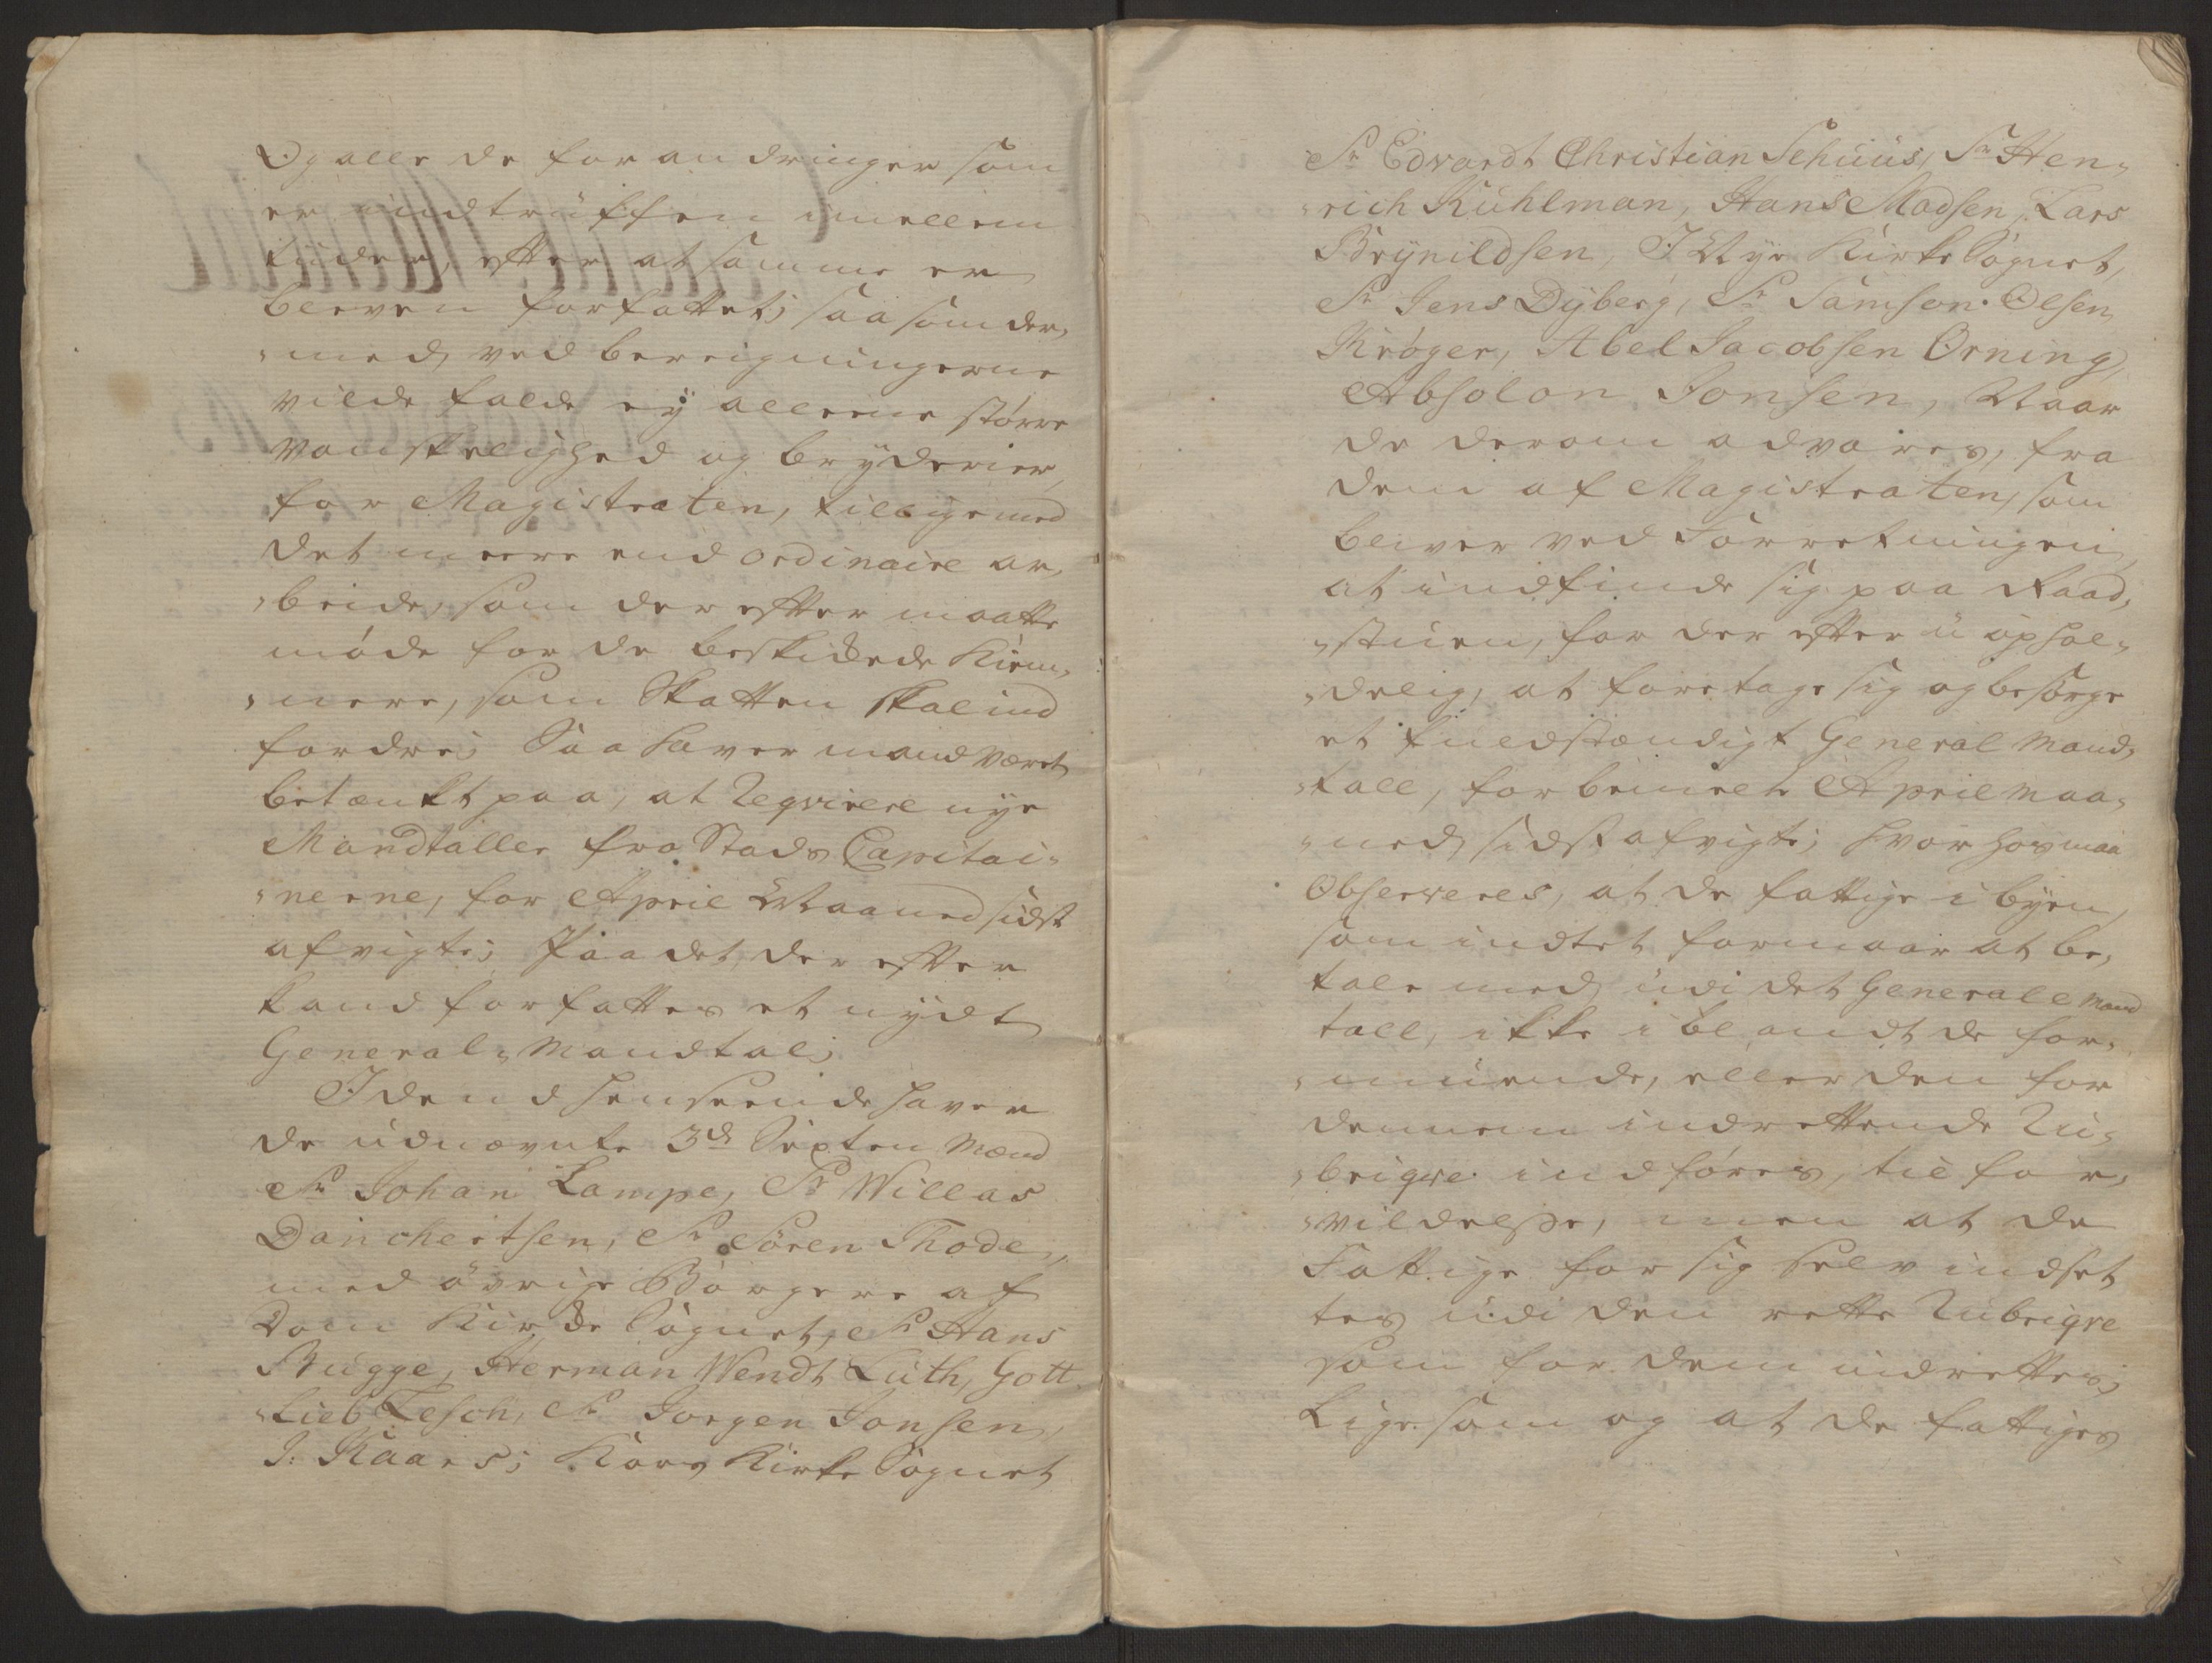 Og alle de forandringer som
er indtruffen imellem
tiden, efter at samme er
bleven forfattet; saasom der,
"med, ved bereigningerne
vilde falde ey alleene større
Vanskelighed og bryderier,
for Magistraten, tilligemed
det meere end ordinaire ar,
"beide, som der efter maatte
møde for de beskikkede Kiem,
"nere, som Skatten skal ind
fordre; Saa haver mand været
betænkt paa, at Reqvirere nye
Mandtaller fra Stads Capitai,
"nerne, for April Maaned sidst
afvigte; Paa det der efter
kand forfattes et nydt
General-Mandtal;
I den d henseende haver
de udnævnte 3de Sexten Mænd
Sr Johan Lampe, Sr Willas
Danchertsen, Sr Søren Thode,
med øvrige Borgere af
Dom Kirke Sognet, Sr Hans
Bugge, Herman Wendt Lüth, Gott
"lieb Lesch, Sr Jørgen Jonsen,
J: Kaars; Kors Kirke Sognet
Sr Edvardt Christian Schuus, Sr Hen,
"rich Kuhlman, Hans Madsen, Lars
Brynildsen, I Nye Kirke Sognet,
Sr Jens Dyberg, Sr Samson Olsen
Krøger, Abel Jacobsen Orning,
Absolon Jonsen, Naar
de derom advares, fra
dem af Magistraten, som
bliver ved Forretningen,
at indfinde sig paa Raad,
"stuen, for der efter u-ophol,
"delig, at foretage sig og besørge
et fuldstændigt General Mand,
"tall, for bemelte April Maa,
"ned, sidst afvigte; hvor hos maa
Observeres, at de fattige i byen,
som indtet formaar at be,
tale med, udi det Generale Mand
tall, ikke iblandt de for,
"muende, eller den for
dennem indrettende Ru,
"briqve indføres, til for,
"vildelse, men at de
Fattige for sig selv indset
tes udi den rette Rubriqve
som for dem indrettes;
Ligesom og at de fattiges